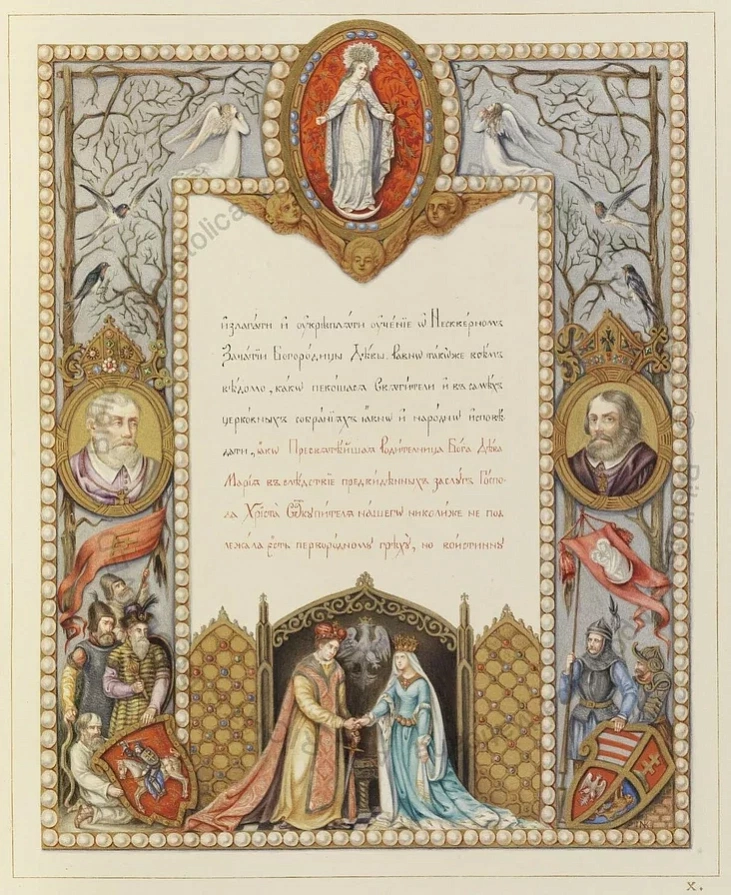 и҆злага́ти и҆ ᲂу҆крѣплѧ́ти ᲂу҆че́нїе ѡ҆ Нескве́рномъ
Зача́тїи Богоро́дицы Дѣ́вы. Ра́внѡ та́кѡже всѣ́мъ
вѣ́домо, ка́кѡ пеко́шасѧ Свѧти́тели и҆ въ са́мѣхъ
церко́вныхъ собра́нїѧхъ ꙗ҆́внѡ и҆ наро́днѡ и҆сповѣ́
дати, ꙗ҆́кѡ Пресвѧтѣ́йшаѧ Роди́телница Бо́га Дѣ́ва
Марі́а въ слѣ́дствїе предви́дѣнныхъ заслу́гъ Го́спо-
да Хрїста̀ Сѡискупи́телѧ на́шегѡ николи́же не под
лежа́ла є҆́сть перворо́дному грѣхꙋ̀, но вои́стиннꙋ
X.